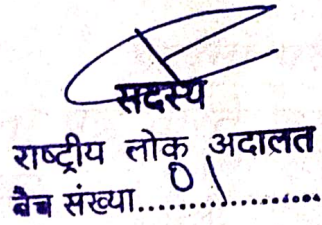 सदस्य
राष्ट्रीय लोक अदालत
बैच संख्या....01..............